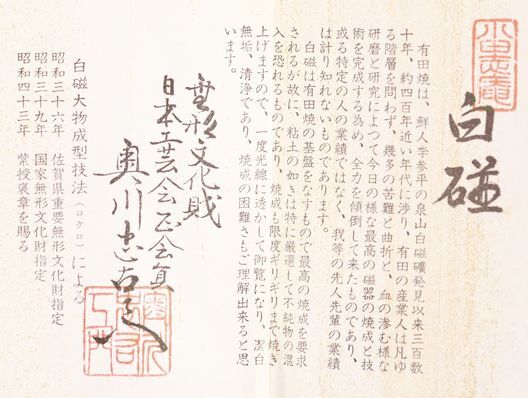 白磁
有田焼は、鮮人李参平の泉山白磁礦発見以来三百数
十年、約四百年近い年代に渉り、有田の産業人は凡ゆ
る階層を問わず、幾多の苦難と曲折と、血の滲む様な
研磨と研究によつて今日の様な最高の磁器の焼成と技
術を完成する為め、全力を傾倒して来たものであり、
或る特定の人の業績ではなく、我等の先人先輩の業績
は計り知れないものであります。
白磁は有田焼の基盤をなすもので最高の焼成を要求
されるが故に、粘土の如きは特に厳選して不純物の混
入を恐れるものであり、焼成も限度ギリギリまで焼き
上げますので、一度光線に透かして御覧になり、潔白
無垢、清浄であり、焼成の困難さもご理解出来ると思
います。
無形文化財
日本工芸会正会員
奥川忠右エ門
白磁大物成型技法（ロクロ）による
昭和三十六年 佐賀県重要無形文化財指定
昭和三十九年 国家無形文化財指定
昭和四十三年 紫授褒章を賜る